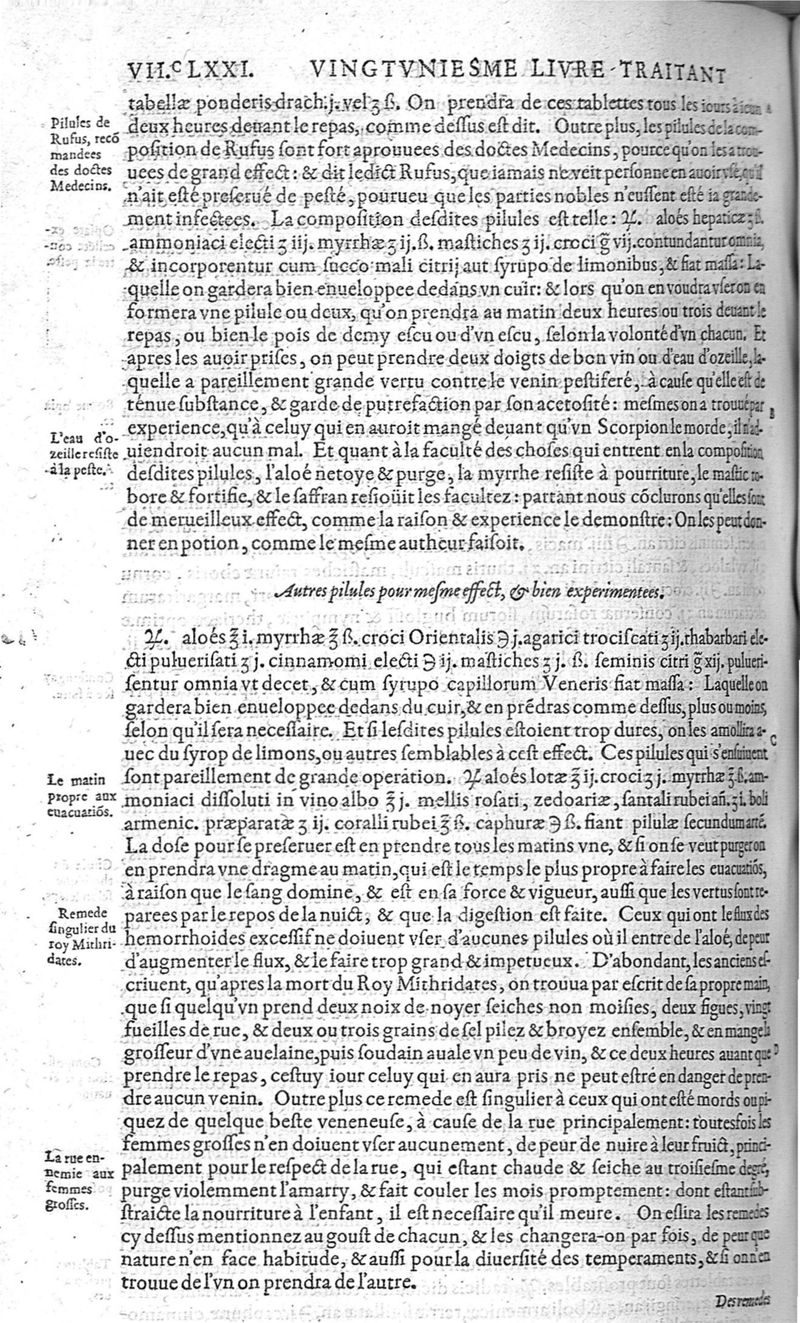 VII.C LXXI. VINGTVNIESME LIVRE TRAITANT
tabellæ ponderis drach. j. vel ʒ ß. On prendra de ces tablettes tous les iours
Pilules de Rufus, recõmandees des doctes Medecins.
deux heures deuant le repas, comme dessus est dit. Outre plus, les pilules de la com-
position de Rufus sont fort aprouuees des doctes Medecins, pource qu'on les a trou-
uees de grand effect: & dit ledict Rufus, que iamais n'a veit personne en auoir vsé, qui
n'ait esté preserué de peste, pourueu que les parties nobles n'eussent esté ia grande-
ment infectees. La composition desdites pilules est telle: ♃. aloés hepaticæ ʒ ß.
ammoniaci electi ʒ iij. myrrhæ ʒ ij. ß. mastiches ʒ ij. croci g̃ vij. contundantur omnia,
& incorporentur cum succo mali citrij aut syrupo de limonibus, & fiat massa: La-
quelle on gardera bien enueloppee dedans vn cuir: & lors qu'on en voudra vser on en
formera vne pilule ou deux, qu'on prendra au matin deux heures ou trois deuant le
repas, ou bien le pois de demy escu ou d'vn escu, selon la volonté d'vn chacun. Et
apres les auoir prises, on peut prendre deux doigts de bon vin ou d'eau d'ozeille, la-
quelle a pareillement grande vertu contre le venin pestiferé, à cause qu'elle est de
ténue substance, & garde de putrefaction par son acetosité: mesmes on a trouué par
L'eau d'ozeille resiste à la peste.
experience, qu'à celuy qui en auroit mangé deuant qu'vn Scorpion le morde, il n'ad-
uiendroit aucun mal. Et quant à la faculté des choses qui entrent en la composition
desdites pilules, l'aloé netoye & purge, la myrrhe resiste à pourriture, le mastic ro-
bore & fortifie, & le saffran resioüit les facultez: partant nous cõclurons qu'elles sont
de merueilleux effect, comme la raison & experience le demonstre: On les peut don-
ner en potion, comme le mesme autheur faisoit.
Autres pilules pour mesme effect, & bien experimentees.
♃. aloés ℥ i. myrrhæ ʒ ß. croci Orientalis ℈ j. agarici trociscati ʒ ij. rhabarbari ele-
cti puluerisati ʒ j. cinnamomi electi ℈ ij. mastiches ʒ j. ß. seminis citri g̃ xij. pulueri-
sentur omnia vt decet, & cum syrupo capillorum Veneris fiat massa: Laquelle on
gardera bien enueloppee dedans du cuir, & en prẽdras comme dessus, plus ou moins,
selon qu'il sera necessaire. Et si lesdites pilules estoient trop dures, on les amollira a-
C
uec du syrop de limons, ou autres semblables à cest effect. Ces pilules qui s'ensuiuent
Le matin propre aux euacuatiõs.
sont pareillement de grande operation. ♃ aloés lotæ ℥ ij. croci ʒ j. myrrhæ ℥ ß. am-
moniaci dissoluti in vino albo ℥ j. mellis rosati, zedoariæ, santali rubei añ. ʒ i. boli
armenic. præparatæ ʒ ij. coralli rubei ℥ ß. caphuræ ℈ ß. fiant pilulæ secundum arté.
La dose pour se preseruer est en prendre tous les matins vne, & si on se veut purger on
en prendra vne dragme au matin, qui est le temps le plus propre à faire les euacuatiõs,
à raison que le sang domine, & est en sa force & vigueur, aussi que les vertus sont re-
parees par le repos de la nuict, & que la digestion est faite. Ceux qui ont le flux des
Remede singulier du roy Mithridates.
hemorrhoides excessif ne doiuent vser d'aucunes pilules où il entre de l'aloé, de peur
d'augmenter le flux, & le faire trop grand & impetueux. D'abondant, les anciens es-
criuent, qu'apres la mort du Roy Mithridates, on trouua par escrit de sa propre main,
que si quelqu'vn prend deux noix de noyer seiches non moisies, deux figues, vingt
fueilles de rue, & deux ou trois grains de sel pilez & broyez ensemble, & en mange la
grosseur d'vne auelaine, puis soudain auale vn peu de vin, & ce deux heures auant que
D
prendre le repas, cestuy iour celuy qui en aura pris ne peut estré en danger de pren-
dre aucun venin. Outre plus ce remede est singulier à ceux qui ont esté mords ou pi-
quez de quelque beste veneneuse, à cause de la rue principalement: toutesfois les
femmes grosses n'en doiuent vser aucunement, de peur de nuire à leur fruict, princi-
La rue ennemie aux femmes grosses.
palement pour le respect de la rue, qui estant chaude & seiche au troisiesme degré,
purge violemment l'amarry, & fait couler les mois promptement: dont estant sub-
straicte la nourriture à l'enfant, il est necessaire qu'il meure. On eslira les remedes
cy dessus mentionnez au goust de chacun, & les changera-on par fois, de peur que
nature n'en face habitude, & aussi pour la diuersité des temperaments, & si on n'en
trouue de l'vn on prendra de l'autre.
Des remedes